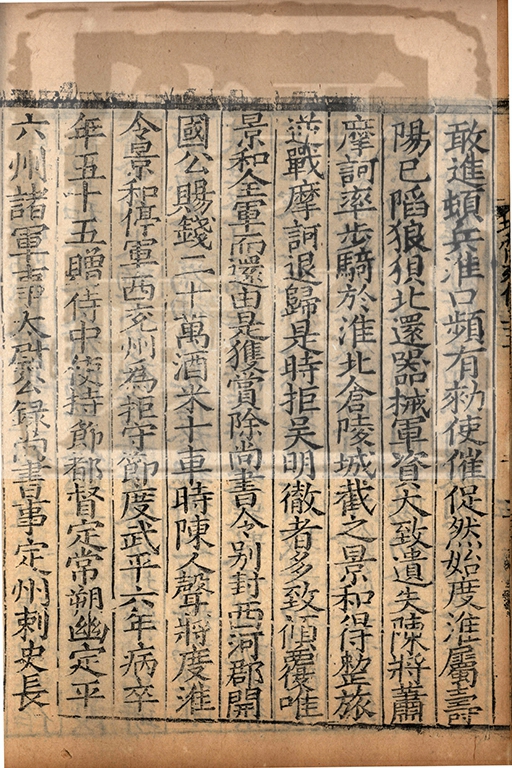 敢進頓兵淮口頻有勑使催促然始度淮屬壽
陽已䧟狼狽北還器械軍資大致遺失陳將蕭
摩訶率步騎於淮北倉陵城截之景和得整旅
逆戰摩訶退歸是時拒吳明徹者多致傾覆唯
景和全軍而還由是獲賞除尚書令别封西河郡開
國公賜錢二十萬酒米十車時陳人聲將度淮
令景和停軍西兖州為拒守節度武平六年病卒
年五十五贈侍中使持節都督定常朔幽定平
六州諸軍事太尉公録尚書事定州刺史長